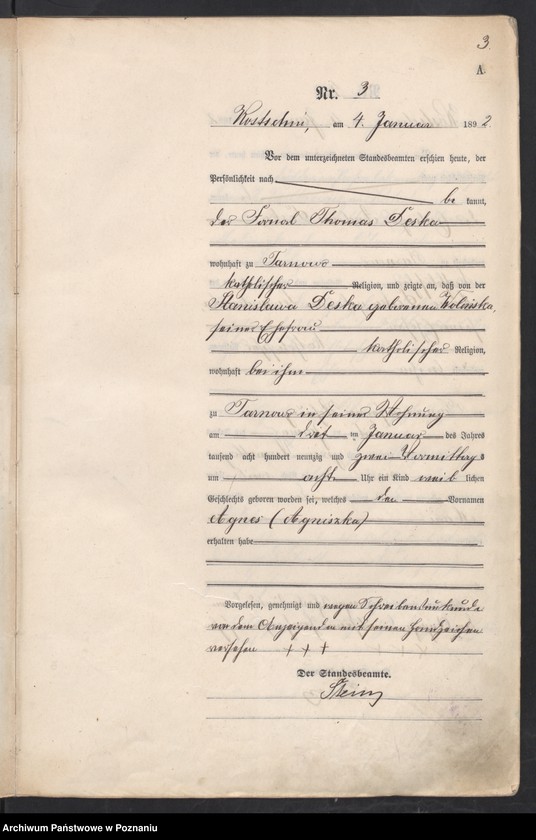 3.
A.
Nr. 3
Kostschin, am 4. Januar 1892.
Vor dem unterzeichneten Standesbeamten erschien heute, der
Persönlichkeit nach
be kannt,
der Fornal Thomas Deska
wohnhaft zu Tarnowo
katholischer Religion, und zeigte an, daß von der
Stanislawa Deska geborenen
seiner Ehefrau
katholischer Religion,
wohnhaft bei ihm
zu Tarnowo in seiner Wohnung
am drei ten Januar des Jahres
tausend acht hundert neunzig und zwei Vormittags
um acht Uhr ein Kind weib lichen
Geschlechts geboren worden sei, welches den Vornamen
Agnes (Agniszka)
erhalten habe
Vorgelesen, genehmigt und wegen Schreibensunkunde
von dem Anzeigenden mit seinem Handzeichen
versehen + + +
Der Standesbeamte.
Archiwum Państwowe w Poznaniu